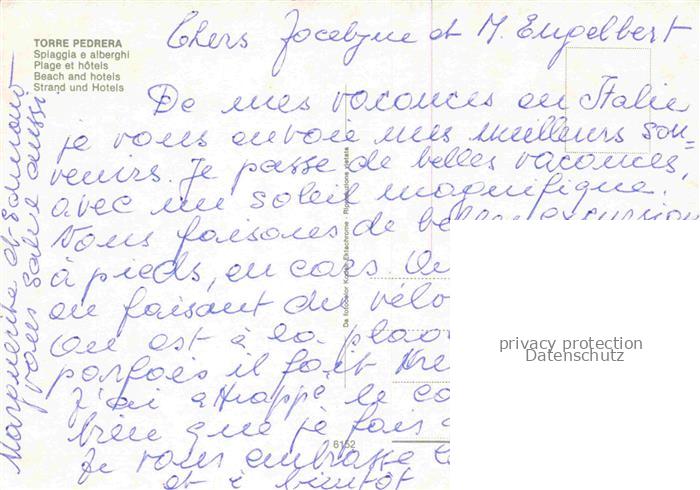 TORRE PEDRERA
Spiaggia e alberghi
Plage et hôtels
Beach and hotels
Strand und Hotels
Chers Jocelyne et M. Engelbert
De mes vacances en Italie
je vous envoie mes meilleurs sou-
venirs. Je passe de belles vacances,
avec un soleil magnifique.
Nous faisons de belles excursion
à pieds, en cars. On
en faisant du vélo
On est à la plag
parfois il fait tre
J'ai attrappé le co
bien que je fais
Je vous embrasse
et à bientôt
Marguerite et Edmond
vous salue aussi
Da fotocolor Kodak Ektachrome - Riproduzione vietata
6152
privacy protection
Datenschutz